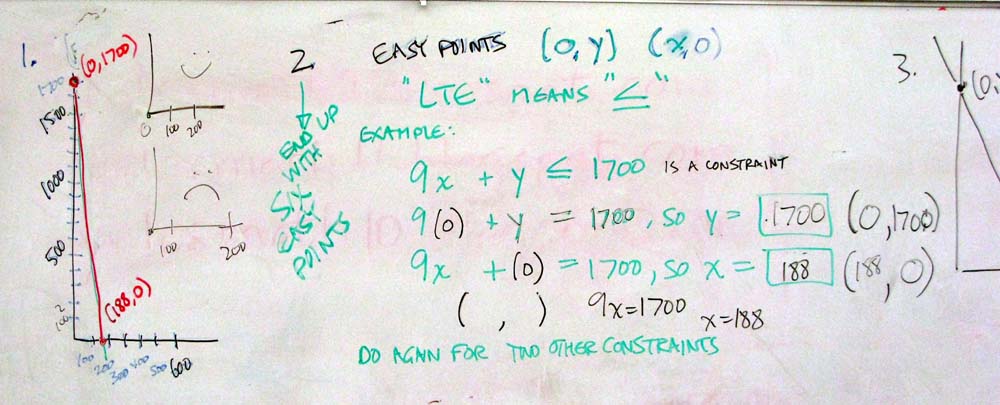 1.
(0,1700)
1700
1500
1000
500
100
(188,0)
100 200 300 400 500 600
0 100 200
100 200
2.
END UP
WITH
SIX
EASY
POINTS
EASY POINTS (0,y) (x,0)
"LTE" MEANS "≤"
EXAMPLE:
9x + y ≤ 1700 IS A CONSTRAINT
9(0) + y = 1700, SO y = 1700 (0,1700)
9x + (0) = 1700, SO x = 188 (188, 0)
( , ) 9x=1700 x=188
DO AGAIN FOR TWO OTHER CONSTRAINTS
3.
(0,